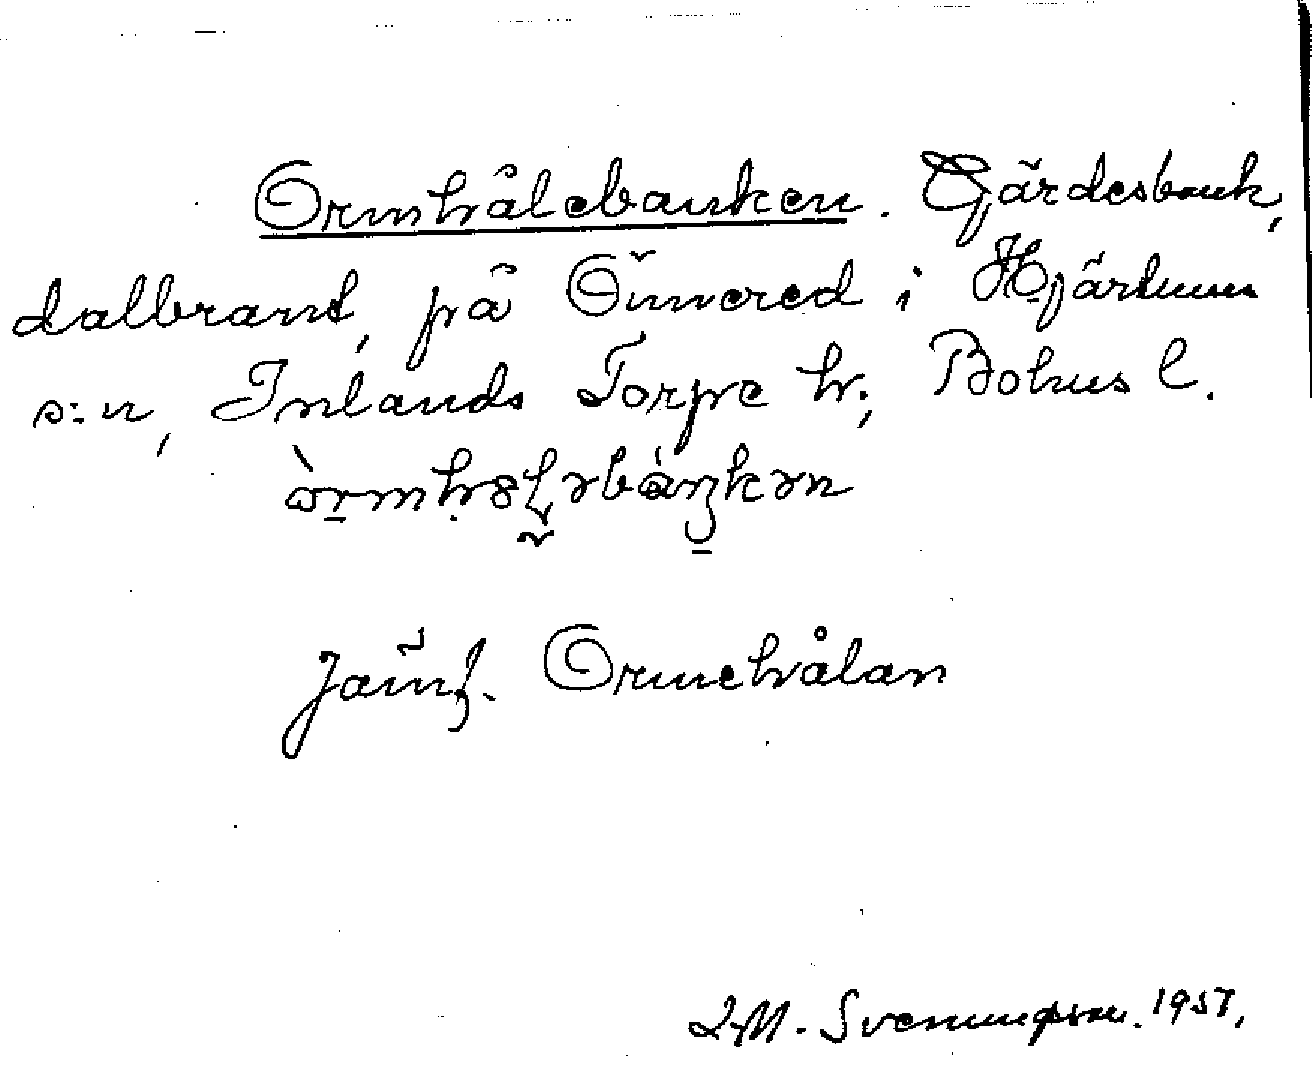 Ormhålebanken. Gärdesbank,
dalbrant, på Önnered i Hjärtum
s:n, Inlands Torpe hr, Bohus l.
Jämf. Ormehålan
L.M. Svenungsson. 1957.